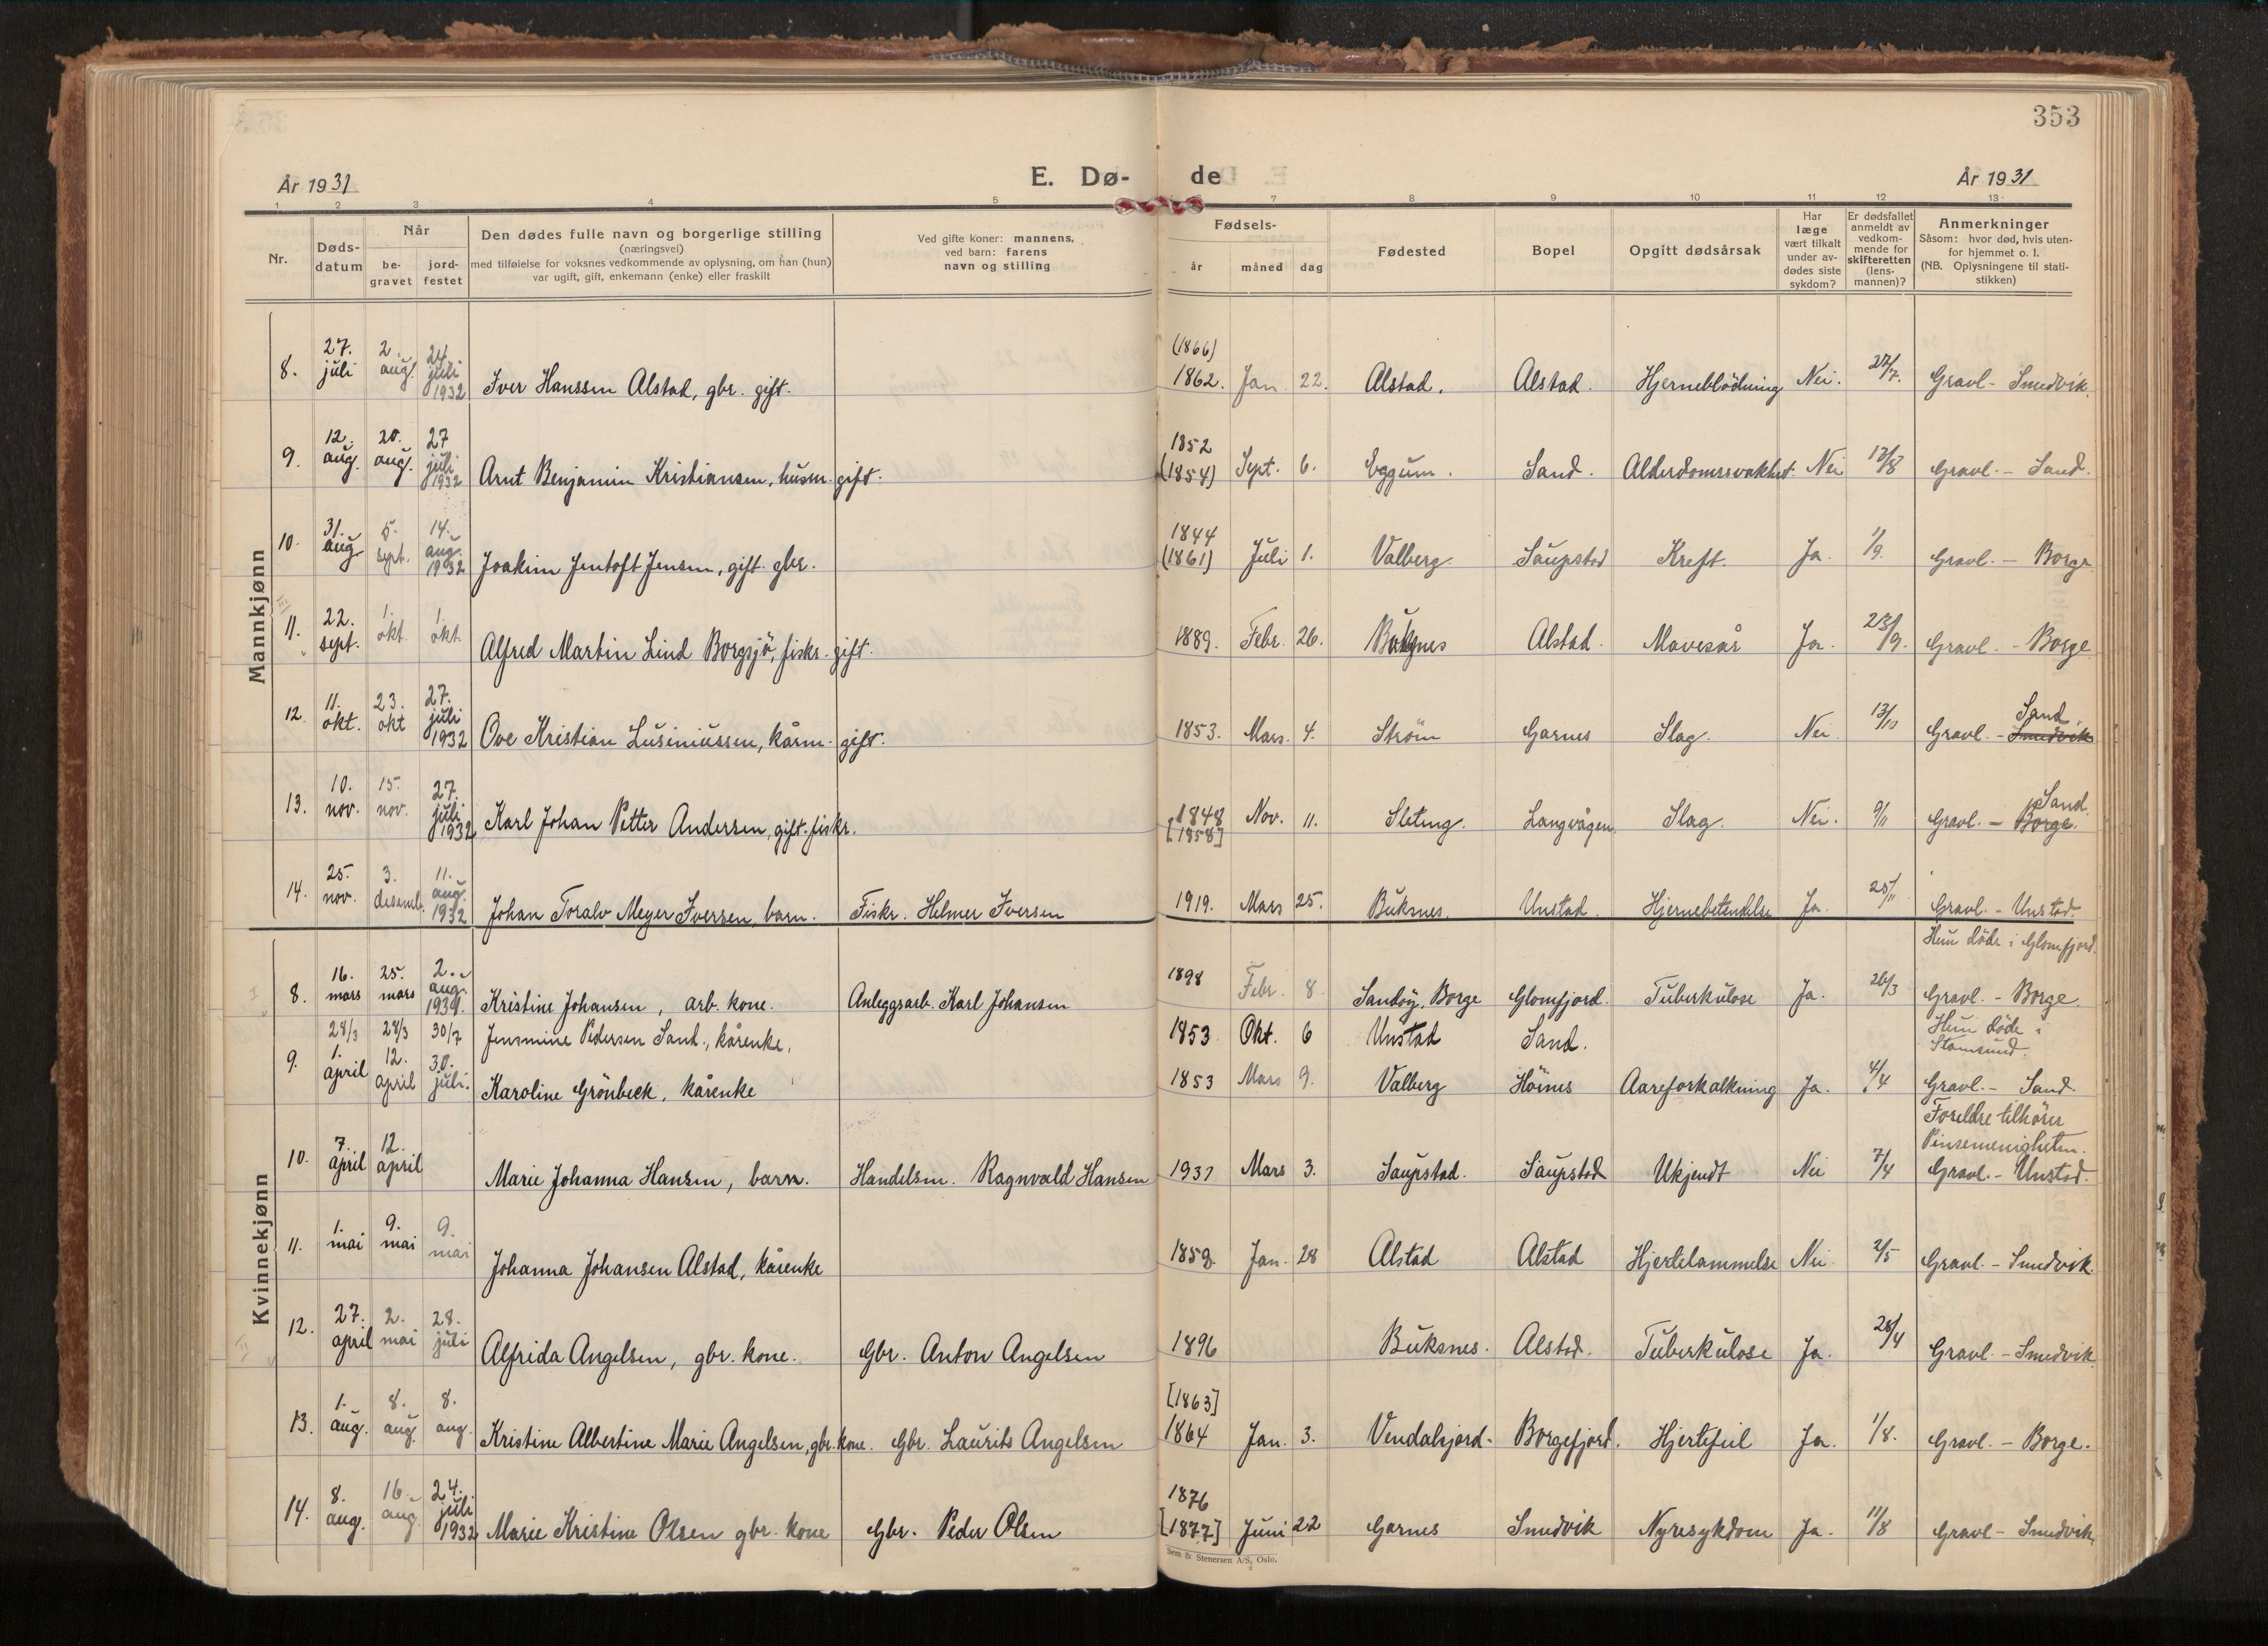 353
År 1931
E. Dø-
de
År 1931
1 2 3 4 5 7 8 9 10 11 12 13
Nr.
Døds-
datum
Når
be-
gravet
jord-
festet
Den dødes fulle navn og borgerlige stilling
(næringsvei)
med tilføielse for voksnes vedkommende av oplysning, om han (hun)
var ugift, gift, enkemann (enke) eller fraskilt
Ved gifte koner: mannens,
ved barn: farens
navn og stilling
Fødsels-
år måned dag
Fødested
Bopel
Opgitt dødsårsak
Har
læge
vært tilkalt
under av-
dødes siste
sykdom?
Er dødsfallet
anmeldt av
vedkom-
mende for
skifteretten
(lens-
mannen)?
Anmerkninger
Såsom: hvor død, hvis uten-
for hjemmet o. l.
(NB. Oplysningene til stati-
stikken)
Mannkjønn
8. 27. juli 2. aug. 24 juli 1932 Iver Hanssen Alstad, gbr. gift. (1866) 1862. Jan 22. Alstad. Alstad. Hjerneblödning Nei. 27/7. Gravl - Smedvik.
9. 12. aug. 20. aug. 27 juli 1932 Arnt Benjamin Kristiansen, husm. gift. 1852 (1854) Sept. 6. Eggum. Sand. Alderdomssvakhet. Nei 13/8 Gravl. - Sand.
10. 31. aug. 5. sept. 14. aug. 1932 Joakim Jentoft Jensen, gift. gbr. 1844 (1861) Juli 1. Valberg. Saupstad Kreft. Ja. 1/9. Gravl. - Borge.
11. 22. sept. 1. okt. 1. okt. Alfred Martin Lind Borgsjö, fiskr. gift. 1889. Febr. 26. Buksnes Alstad. Mavesår Ja. 23/9. Gravl. - Borge
12. 11. okt. 23. okt 27. juli 1932 Ove Kristian Lusiniussen, kårm. gift. 1853. Mars. 4. Ström Garnes Slag. Nei 13/10 Gravl. - Smedvik Sand.
13. 10. nov. 15. nov. 27. juli 1932 Karl Johan Petter Andersen, gift. fiskr. 1848 [1858] Nov. 11. Steting. Langvågen Slag. Nei. 9/11 Gravl. - Borge. Sand.
14. 25. nov. 3. desemb. 11. aug. 1932 Johan Toralv Meyer Iversen, barn. Fiskr. Helmer Iversen 1919. Mars 25. Buksnes. Unstad. Hjernebetendelse Ja. 25/11 Gravl. - Unstad.
Kvinnekjønn
Hun döde i Glomfjord.
8. 16. mars 25. mars 2. aug. 1934. Kristine Johansen, arb. kone. Anleggsarb. Karl Johansen 1898 Febr. 8 Sandöy, Borge Glomfjord. Tuberkulose Ja. 26/3 Gravl. - Borge.
28/3 28/3 30/7 Jensmine Pedersen Sand., kårenke. 1853 Okt. 6 Unstad Sand.
Hun döde i
Stamsund.
9. 1. april 12. april 30. juli. Karoline Grönbeck, kårenke 1853 Mars 9. Valberg Höines Aareforkalkning Ja. 4/4 Gravl. - Sand.
Foreldre tilhörer
Pinsemenigheten.
10. 7. april 12. april Marie Johanna Hansen, barn. Handelsm. Ragnvald Hansen 1931 Mars 3. Saupstad. Saupstad Ukjendt Nei 7/4 Gravl. - Unstad.
11. 1. mai 9. mai 9. mai Johanna Johansen Alstad, kårenke 1859. Jan. 28 Alstad Alstad Hjertelammelse Nei 2/5 Gravl. - Smedvik.
12. 27. april 2. mai 28. juli Alfrida Angelsen, gbr. kone. Gbr. Anton Angelsen 1896 Buksnes. Alstad. Tuberkulose Ja. 28/4 Gravl. - Smedvik.
13. 1. aug. 8. aug. 8. aug. Kristine Albertine Marie Angelsen, gbr. kone. Gbr. Laurits Angelsen [1863] 1864 Jan. 3. Vendalsjord. Borgefjord. Hjertefeil Ja. 1/8. Gravl. - Borge.
14. 8. aug. 16. aug. 24. juli 1932 Marie Kristine Olsen gbr. kone Gbr. Peder Olsen 1876 [1877] Juni 22 Garnes Smedvik Nyresykdom Ja. 11/8 Gravl - Smedvik.
Sem & Stenersen A/S, Oslo.